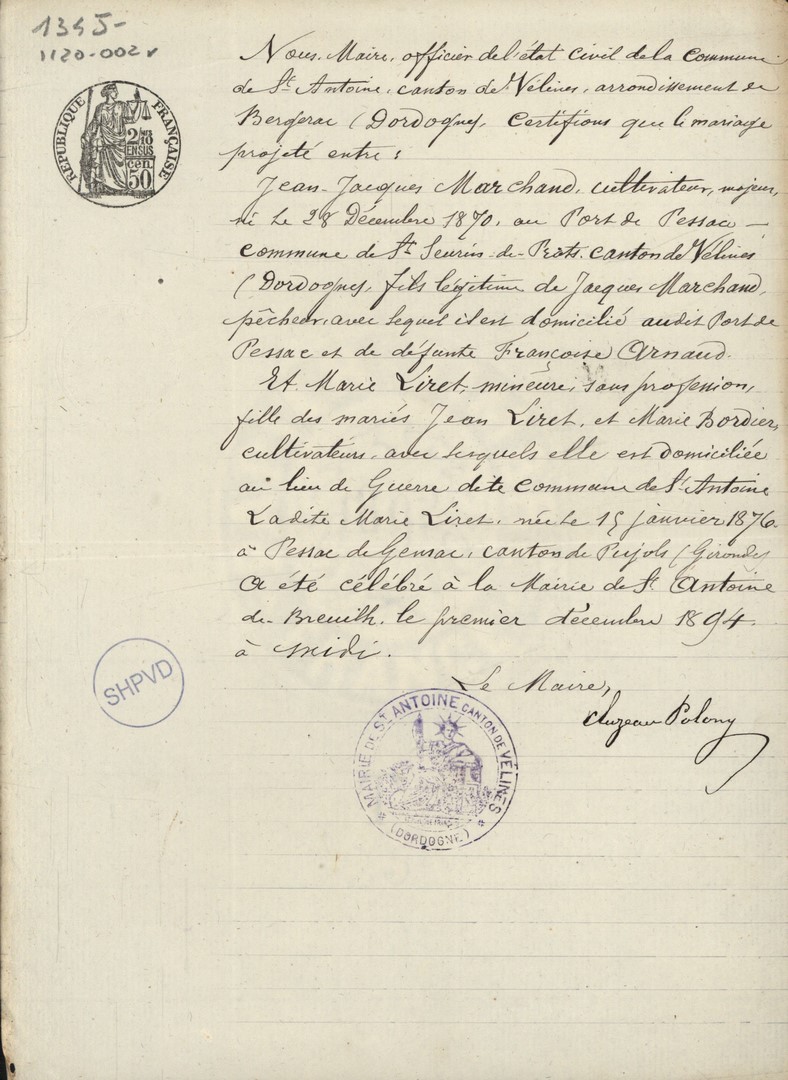 1345-
1120-002 v
RÉPUBLIQUE FRANÇAISE
2/10 EN SUS
50 cen
Nous, Maire, officier de l'état civil de la Commune
de St Antoine, canton de Vélines, arrondissement de
Bergerac (Dordogne), Certifions que le mariage
projeté entre :
Jean-Jacques Marchand, cultivateur, majeur,
né le 28 Décembre 1870, au Port de Pessac –
commune de St Seurin-de-Prats, canton de Vélines
(Dordogne), fils légitime de Jacques Marchand,
pêcheur, avec lequel il est domicilié audit Port de
Pessac et de défunte Françoise Arnaud.
Et Marie Liret, mineure, sans profession,
fille des mariés Jean Liret, et Marie Bordier,
cultivateurs, avec lesquels elle est domiciliée
au lieu de Guerre dite commune de St Antoine
Ladite Marie Liret, née le 15 janvier 1876
à Pessac de Gensac, canton de Pujols (Gironde)
a été célébré à la Mairie de St Antoine
de Breuilh, le premier décembre 1894.
à midi.
Le Maire,
SHPVD
MAIRIE DE ST ANTOINE CANTON DE VÉLINES
(DORDOGNE)